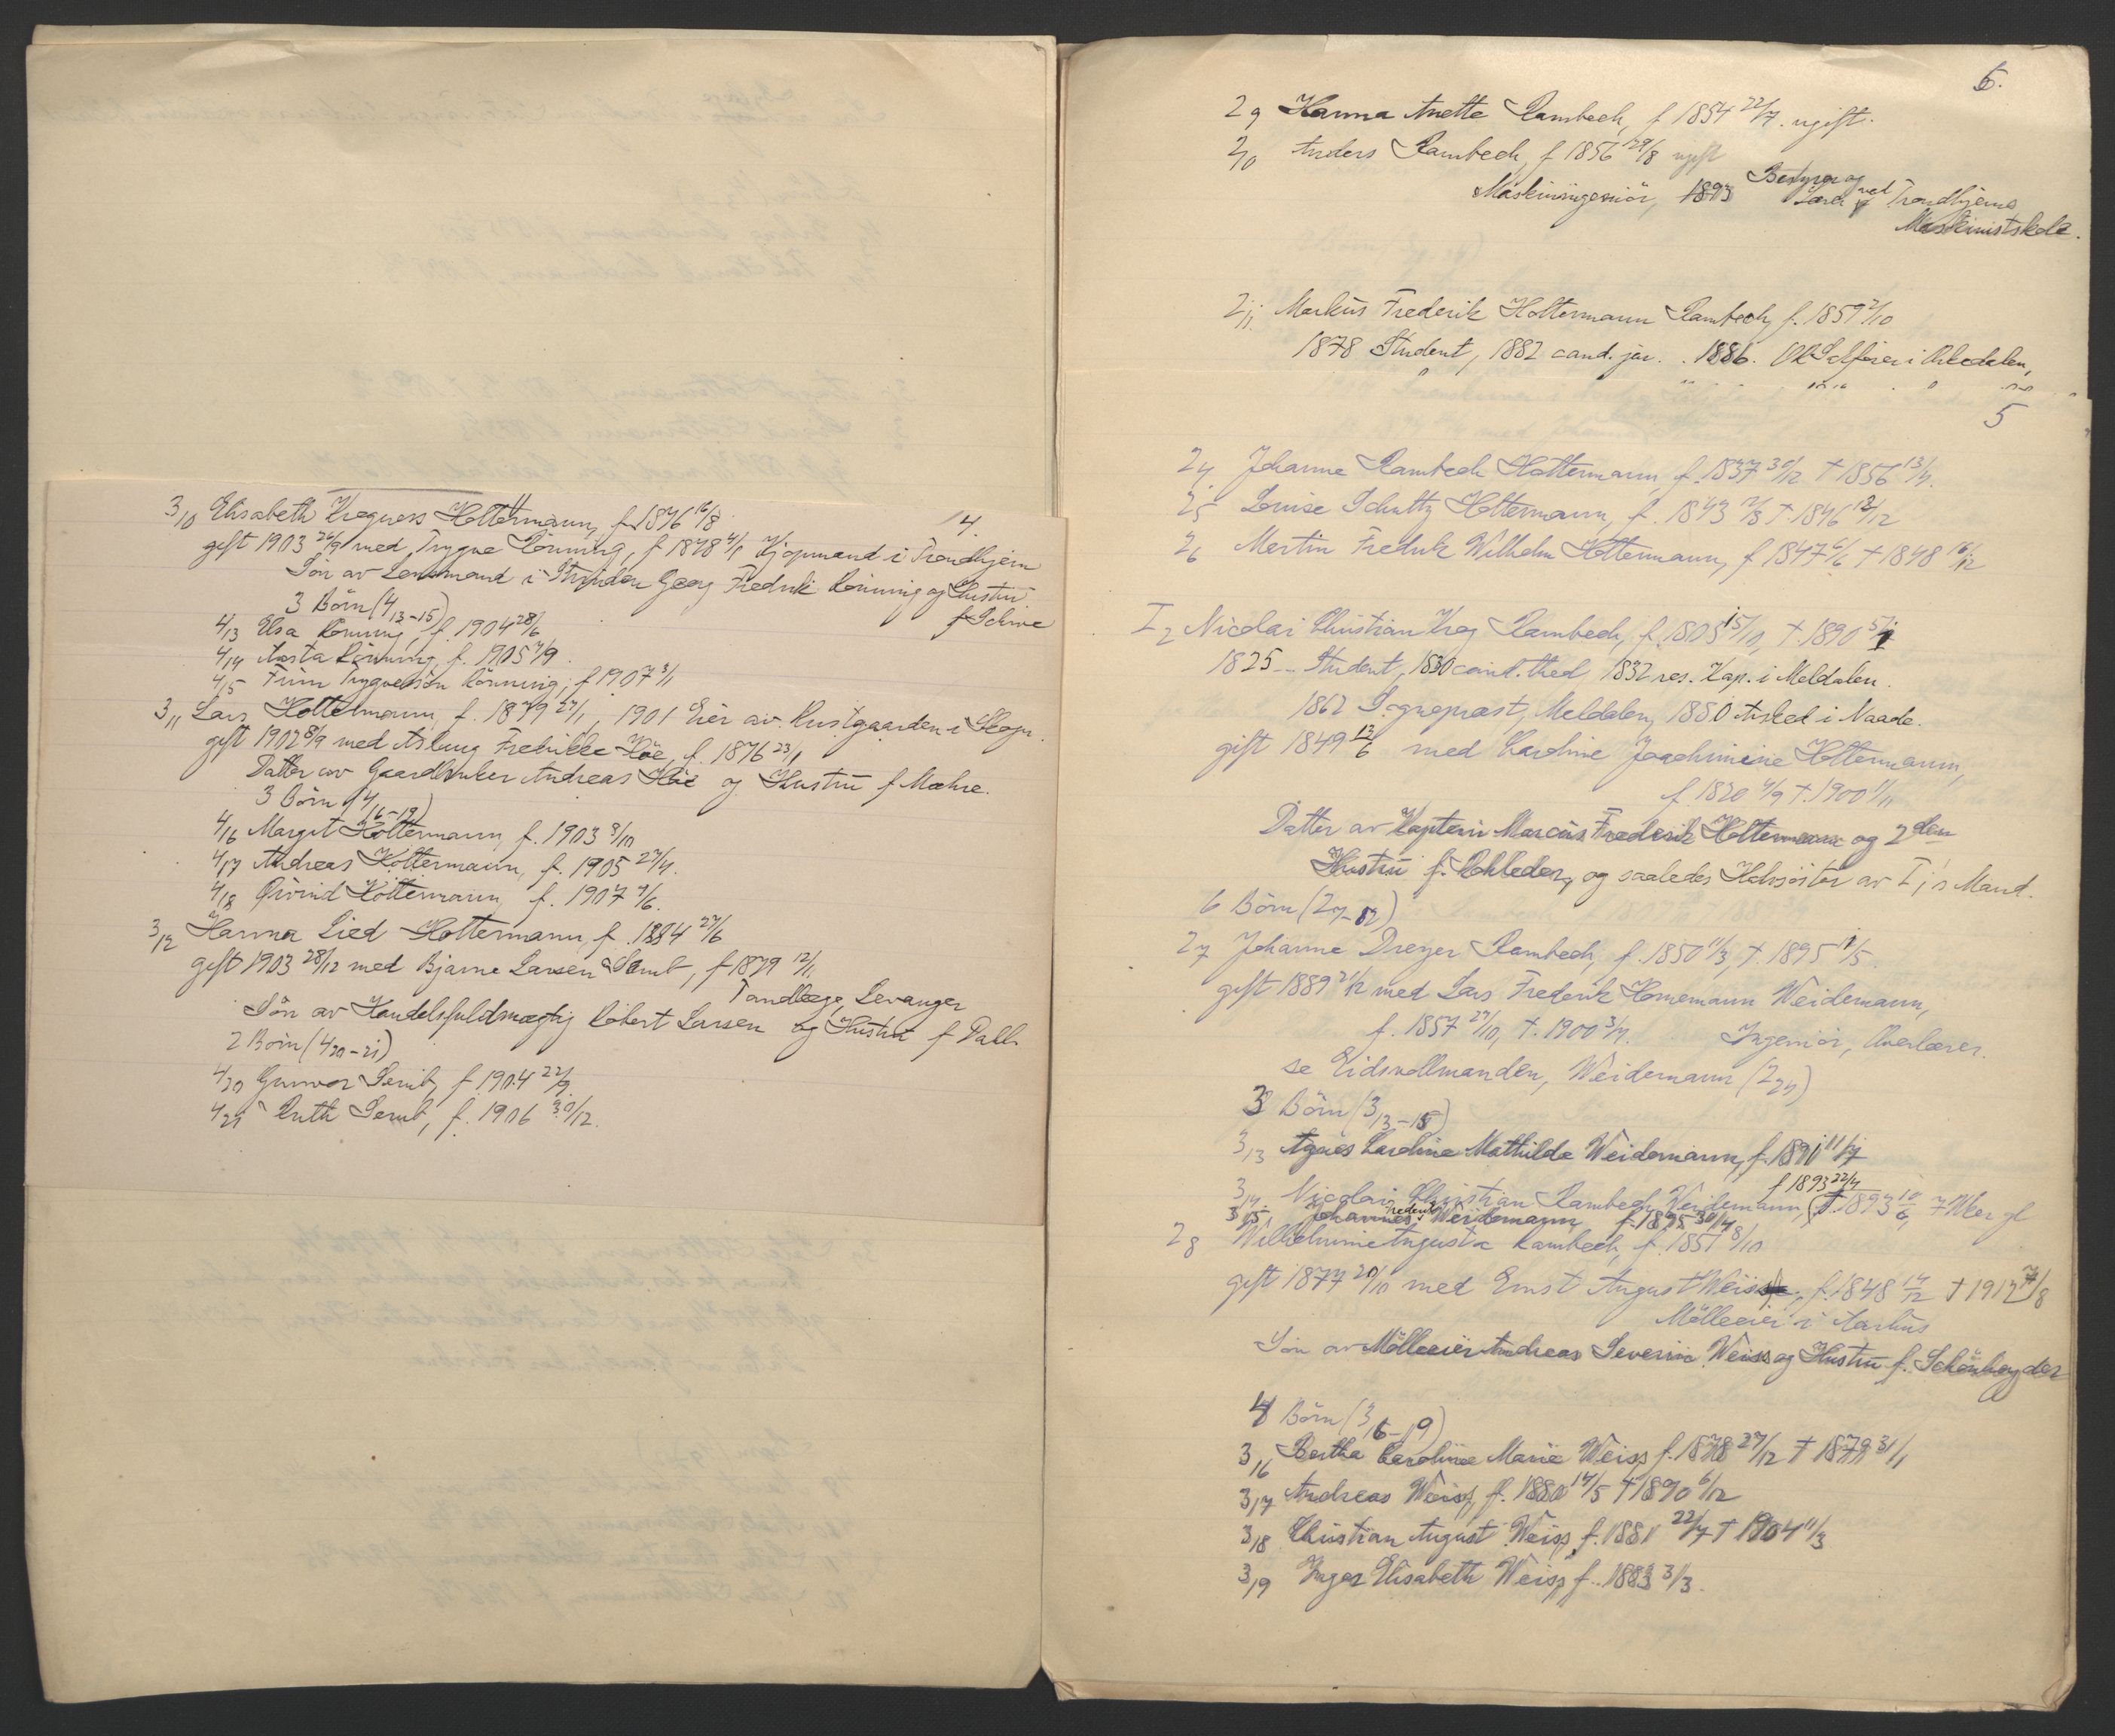 4.
3/10 Elisabeth Krogness Holtermann, f. 1876 16/8
gift 1903 26/9 med Trygve Rönning, f. 1878 4/1 Kjöpmand i Trondhjem
Sön av Lensmand i Strinden Georg Fredrik Rönning og Hustru
f. Schive
3 Börn (4/13-15)
4/13 Elsa Rönning, f. 1904 28/6
4/14 Aasta Rönning, f. 1905 7/9.
4/15 Finn Trygvesön Rönning, f. 1907 3/1
3/11 Lars Holtermann, f. 1879 27/1, 1901 Eier av Rustgaarden i Skogn.
gift 1902 8/9 med Aslaug Fredrikke Höe, f. 1876 23/1
Datter av Gaardbruker Andreas Höe og Hustru f. Mæhre.
3 Börn (4/16-19)
4/16 Margit Holtermann, f. 1903 9/10
4/17 Andreas Holtermann, f. 1905 27/4.
4/18 Öivind Holtermann, f. 1907 7/6.
3/12 Hanna Lied Holtermann, f. 1884 27/6
gift 1903 28/12 med Bjarne Larsen Semb, f. 1879 12/11
Tandlæge, Levanger
Sön av Handelsfuldmægtig Robert Larsen og Hustru f. Dahl.
2 Börn (4/20-21)
4/20 Gunvor Semb, f. 1904 22/9.
4/21 Ruth Semb, f. 1906 30/12.
6.
2 9 Hanna Anette Rambech, f. 1854 22/7. ugift.
2/10 Anders Rambech, f. 1856 29/8 ugift
Maskiningeniör, 1893 Bestyrer og
Lærer ved Trondhjems
Maskinistskole.
2/11 Markus Frederik Holtermann Rambech, f. 1859 2/10
1878 Student, 1882 cand. jur. . 1886. ORSakförer i Orkedalen,
5
2 4 Johanne Rambech Holtermann, f. 1837 30/12 † 1856 13/4.
2 5 Louise Schultz Holtermann, f. 1843 12/3 † 1846 12/12
2 6 Martin Fredrik Wilhelm Holtermann, f. 1847 6/6 † 1848 16/12
I 2 Nicolai Christian Krog Rambech, f. 1805 15/10, †. 1890 5/1
1825 Student, 1830 cand. theol, 1832 res. Kap. i Meldalen.
1862 Sogneprest, Meldalen, 1880 Avsked i Naade.
gift 1849 13/6 med Karoline Joachimine Holtermann,
f. 1820 4/9 †. 1900 1/11
Datter av Kaptein Marcus Frederik Holtermann og 2den
Hustru f. Rohleder, og saaledes Halvsöster av I 1's Mand.
6 Börn (2 7-12)
2 7 Johanne Dreyer Rambech, f. 1850 11/3, †. 1895 11/5.
gift 1889 21/12 med Lars Frederik Hornemann Weidemann,
f. 1857 27/10, †. 1900 3/4. Ingeniör, Overlærer.
se Eidsvollmanden, Weidemann (2 24)
3 Börn (3 13-15)
3 13 Agnes Karoline Mathilde Weidemann, f. 1891 11/7
f 1893 22/4
3 14 Nicolai Christian Rambech Weidemann, † 1893 10/6, 7 Uker gl
3 15 Johannes Fredrik Weidemann f. 1895 30/4
2 8 Wilhelmine Augusta Rambech, f. 1851 8/10
gift 1877 20/10 med Ernst August Weiss, f. 1848 14/12 † 1917 7/8
Mölleeier i Aarhus
Sön av Mölleeier Andreas Severin Weiss og Hustru f. Schönheyder
4 Börn (3 16-19)
3 16 Bertha Caroline Marie Weiss f. 1878 27/12 † 1879 31/1
3 17 Andreas Weiss, f. 1880 14/5 † 1890 6/12
3 18 Christian August Weiss, f. 1881 22/7 † 1904 11/3
3 19 Inger Elisabeth Weiss, f. 1883 3/3.